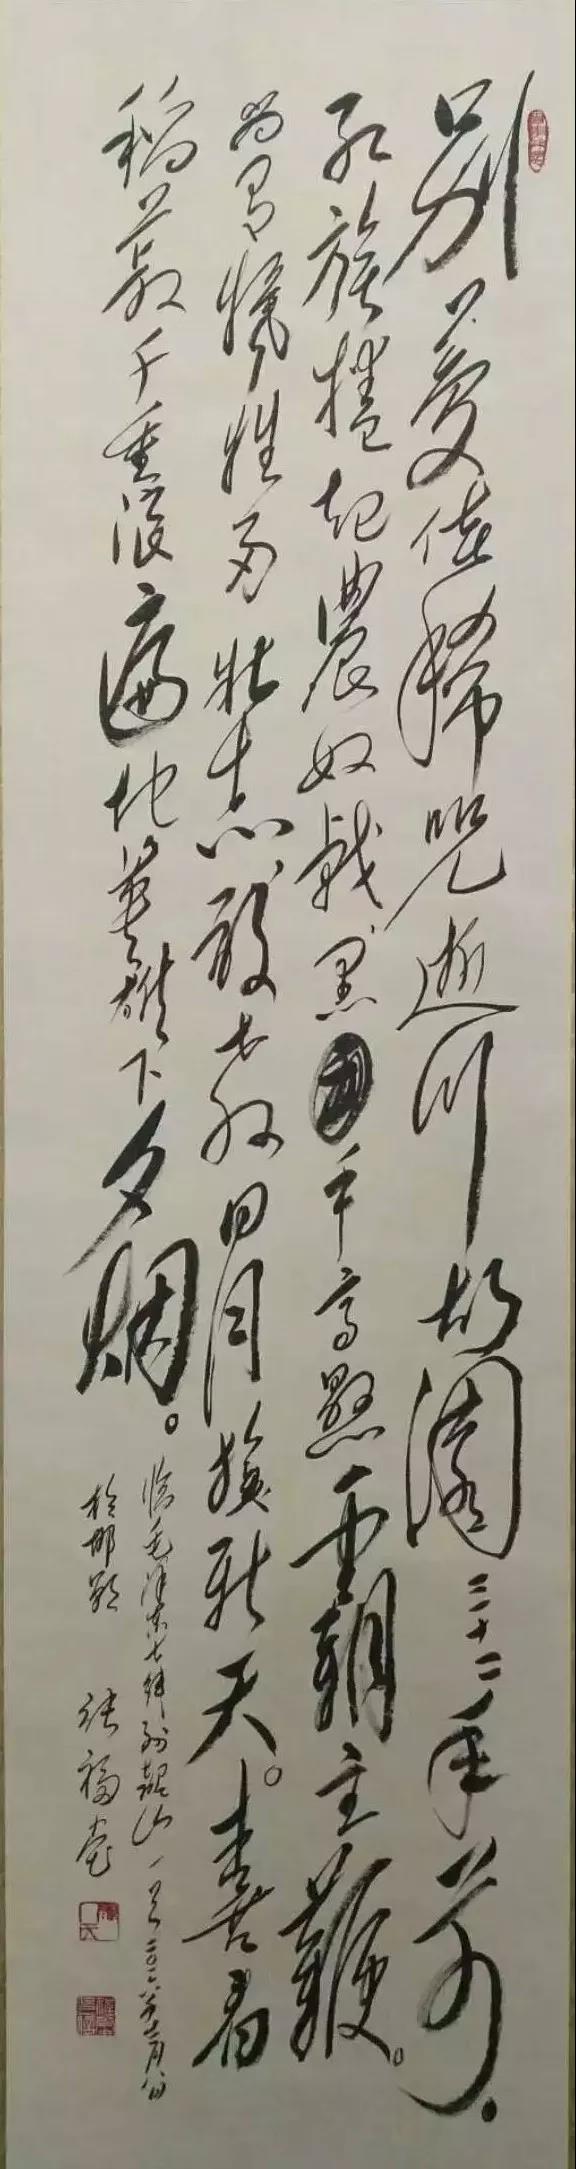 别夢依稀咒逝川故園三十二年前。
红旗捲起農奴戟黑手高懸霸主鞭。
为有犧牲多壮志敢教日月换新天。喜看
稻菽千重浪遍地英雄下夕烟。
临毛泽东七律到韶山一首二〇一八年
於邯郸 张福堂